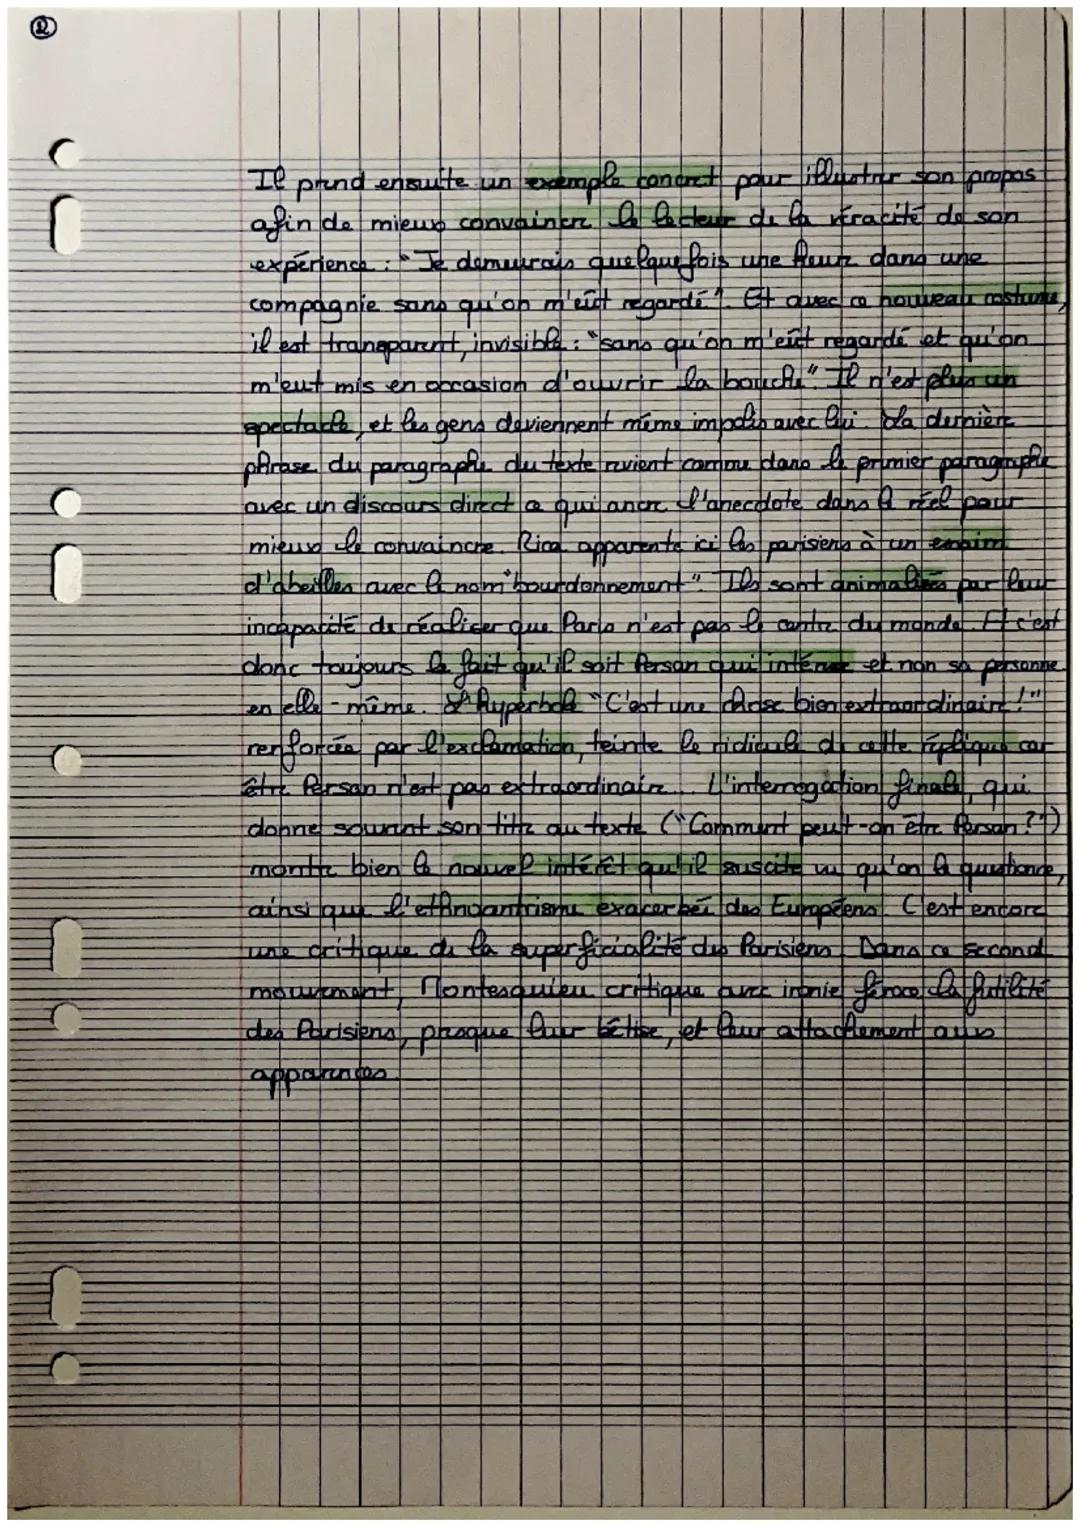 ②
Il prend ensuite un exemple concret pour illustrer son propos
afin de mieux convaincre le lecteur de la véracité de son
expérience : "Je demeurais quelquefois une heure dans une
compagnie sans qu'on m'eût regardé". Et avec ce nouveau costume,
il est transparent, invisible : "sans qu'on m'eût regardé et qu'on
m'eut mis en occasion d'ouvrir la bouche". Il n'est plus un
spectacle, et les gens deviennent même impolis avec lui. La dernière
phrase du paragraphe du texte revient comme dans le premier paragraphe
avec un discours direct ce qui ancre l'anecdote dans le réel pour
mieux le convaincre. Rica apparente ici les parisiens à un essaim
d'abeilles avec le nom "bourdonnement". Ils sont animalisés par leur
incapacité de réaliser que Paris n'est pas le centre du monde. Et c'est
donc toujours le fait qu'il soit Persan qui intéresse et non sa personne
en elle-même. L'hyperbole "C'est une chose bien extraordinaire !"
renforcée par l'exclamation, teinte le ridicule de cette réplique car
être Persan n'est pas extraordinaire... L'interrogation finale, qui
donne souvent son titre au texte ("Comment peut-on être Persan ?")
montre bien le nouvel intérêt qu'il suscite vu qu'on le questionne,
ainsi que l'ethnocentrisme exacerbé des Européens. C'est encore
une critique de la superficialité des Parisiens. Dans ce second
mouvement, Montesquieu critique avec ironie féroce la futilité
des Parisiens, presque leur bêtise, et leur attachement aux
apparences.